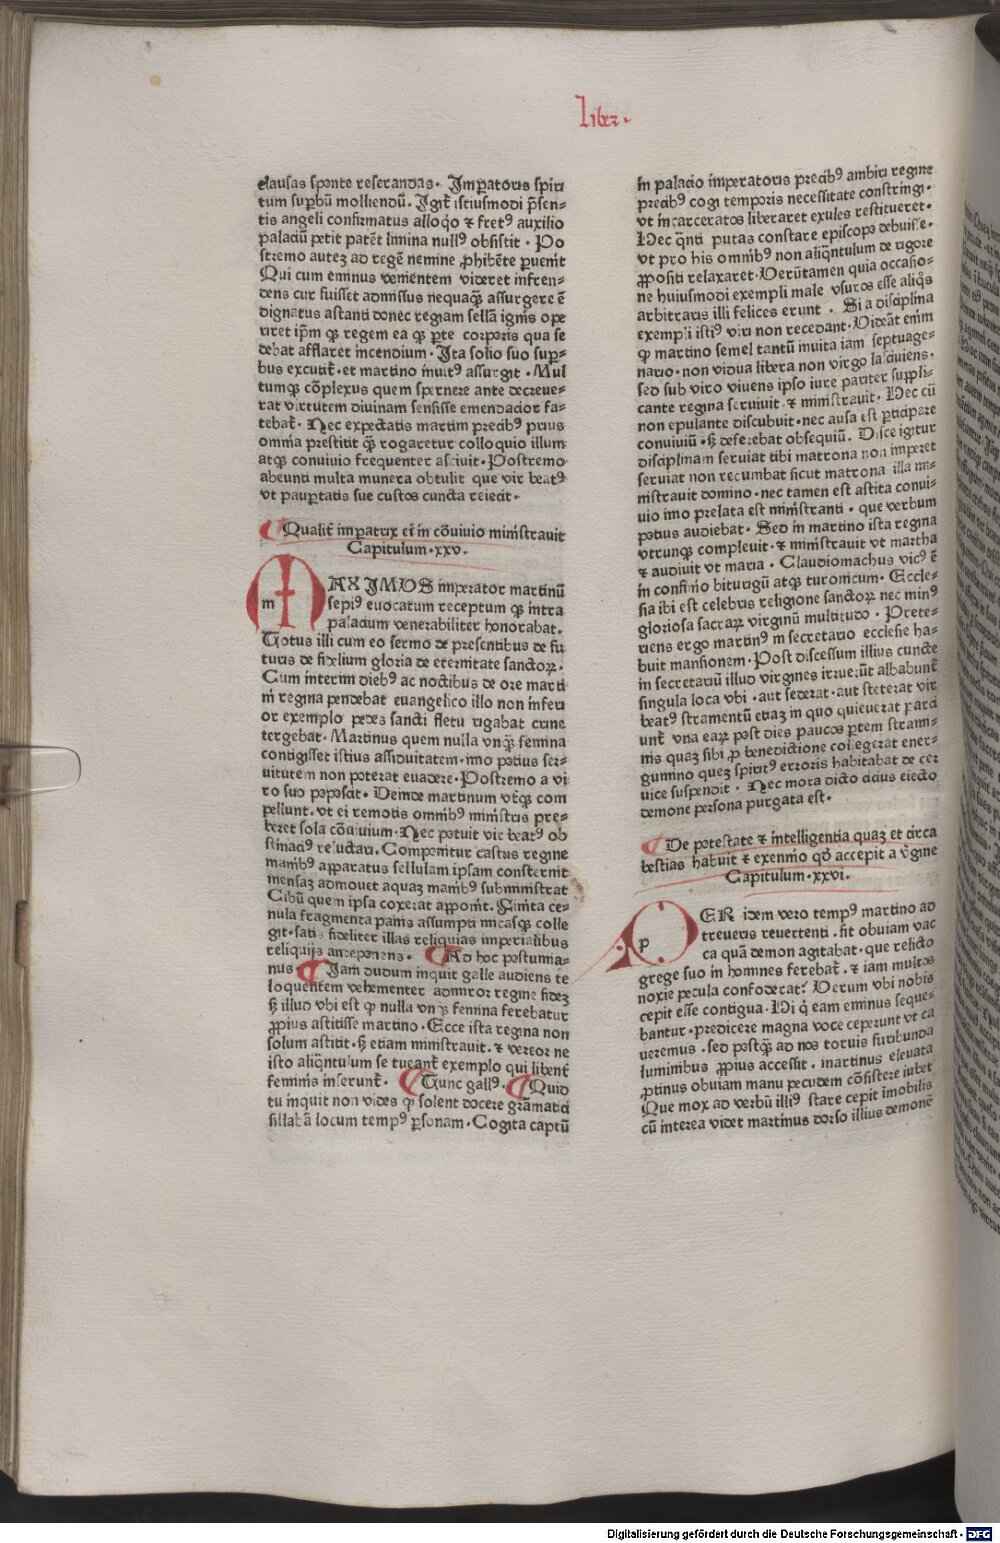 liber.
clausas sponte reserandas. Imp̲atoris spiri
tum sup̲bū molliendū. Igit᷑ istiusmodi p̄sen-
tis angeli confirmatus alloq̇o ⁊ fretꝰ auxilio
palaciū petit patēt limina nullꝰ obsistit. Po
stremo autez ad regē nemine ꝓhibēte ꝑuenit
Qui cum eminus venientem videret infren-
dens cur fuisset admissus nequaq̄ꝫ assurgere ē
dignatus astanti donec regiam sellā ignis ope
riret ip̄m qꝫ regem ea qꝫ ꝑte corporis qua se
debat afflaret incendium. Ita solio suo suꝑ-
bus excutit᷑. et martino inuitꝰ assurgit. Mul
tumqꝫ cōplexus quem spernere ante decreue-
rat virtutem diuinam sensisse emendacior fa-
tebat᷑. Nec expectatis martini precibꝰ prius
omnia prestitit q̄ꝫ rogaretur colloquio illum
atqꝫ conuiuio frequenter asciuit. Postremo
abeunti multa munera obtulit que vir beatꝰ
vt pauꝑtatis sue custos cuncta reiecit.
Qualit᷑ imꝑatrix ei in cōuiuio ministrauit
Capitulum.xxv.
m
AXIMUS imperator martinū
sepiꝰ euocatum receptum qꝫ intra
palacium venerabiliter honorabat.
Totus illi cum eo sermo de presentibus de fu
turis de fidelium gloria de eternitate sanctoꝝ.
Cum interim diebꝰ ac noctibus de ore marti
ni regina pendebat euangelico illo non inferi
or exemplo pedes sancti fletu rigabat crine
tergebat. Martinus quem nulla vnq̄ꝫ femina
contigisset istius assiduitatem. imo potius ser-
uitutem non poterat euadere. Postremo a vi
ro suo poposcit. Deinde martinum vt̄qꝫ com
pellunt. vt ei remotis omībꝰ ministris pre-
beret sola cōuiuium. Nec potuit vir beatꝰ ob
stinaciꝰ reluctari. Componitur castus regine
manibꝰ apparatus sellulam ipsam consternit
mensaz admouet aquaz manibꝰ subministrat
Cibū quem ipsa coxerat apponit. Finita ce-
nula fragmenta panis assumpti micasqꝫ colle
git. satis fideliter illas reliquias imperialibus
reliquijs anteponens. Ad hoc postumia-
nus Iam dudum inquit galle audiens te
loquentem vehementer admiror regine fidez
sꝫ illud vbi est qꝫ nulla vnqꝫ femina ferebatur
ꝓpius astitisse martino. Ecce ista regina non
solum astitit. sꝫ etiam ministrauit. ⁊ vereor ne
isto aliq̄ntulum se tueant᷑ exemplo qui libent᷑
feminis inserunt᷑. Tunc gallꝰ. Quid
tu inquit non vides qꝫ solent docere grāmatici
sillabā locum tempꝰ ꝑsonam. Cogita captū
in palacio imperatoris precibꝰ ambiri regine
precibꝰ cogi temporis necessitate constringi.
vt incarceratos liberaret exules restitueret.
Hec q̄nti putas constare episcopo debuisse.
vt pro his omībꝰ non aliq̄ntulum de rigore
ꝓpositi relaxaret. Verūtamen quia occasio-
ne huiusmodi exempli male vsuros esse aliq̇s
arbitraris illi felices erunt. Si a disciplina
exempli istiꝰ viri non recedant. Videāt enim
qꝫ martino semel tantū in vita iam septuage-
nario. non vidua libera non virgo lasciuiens.
sed sub viro viuens ipso iure pariter suppli-
cante regina seruiuit ⁊ ministrauit. Hec cū
non epulante discubuit. nec ausa est ꝑticipare
conuiuiū. sꝫ deferebat obsequiū. Disce igitur
disciplinam seruiat tibi matrona non imperet
seruiat non recumbat sicut matrona illa mi-
nistrauit domino. nec tamen est astita conui-
uio imo prelata est ministranti. que verbum
potius audiebat. Sed in martino ista regina
vtrunqꝫ compleuit. ⁊ ministrauit vt martha
⁊ audiuit vt maria. Claudiomachus vicꝰ ē
in confinio biturigū atqꝫ turonicum. Eccle-
sia ibi est celebris religione sanctoꝝ nec minꝰ
gloriosa sacraꝝ virginū multitudo. Prete-
riens ergo martinꝰ in secretario ecclesie ha-
buit mansionem. Post discessum illius cuncte
in secretariū illud virgines irruerūt allabunt᷑
singula loca vbi. aut sederat. aut steterat vir
beatꝰ stramentū etiaz in quo quieuerat parti
unt᷑ vna eaꝝ post dies paucos ꝑtem strami-
nis quaz sibi ꝓ benedictione collegerat ener-
gumino quez spiritꝰ erroris habitabat de cer
uice suspendit. Nec mora dicto cicius eiecto
demone persona purgata est.
De potestate ⁊ intelligentia quaz et circa
bestias habuit ⁊ exennio qd̄ accepit a v̄gine
Capitulum.xxvi.
p
ER idem vero tempꝰ martino ad
treueris reuertenti. fit obuiam vac
ca quā demon agitabat. que relicto
grege suo in homines ferebat᷑. ⁊ iam multos
noxie pecula confoderat: Verum vbi nobis
cepit esse contigua. Hi q̇ eam eminus seque-
bantur. predicere magna voce ceperunt vt ca
ueremus. sed postq̄ꝫ ad nos toruis furibunda
luminibus ꝓpius accessit. martinus eleuata
ꝓtinus obuiam manu pecudem cōsistere iubet
Que mox ad verbū illiꝰ stare cepit īmobilis
cū interea videt martinus dorso illius demonē
Digitalisierung gefördert durch die Deutsche Forschungsgemeinschaft - DFG